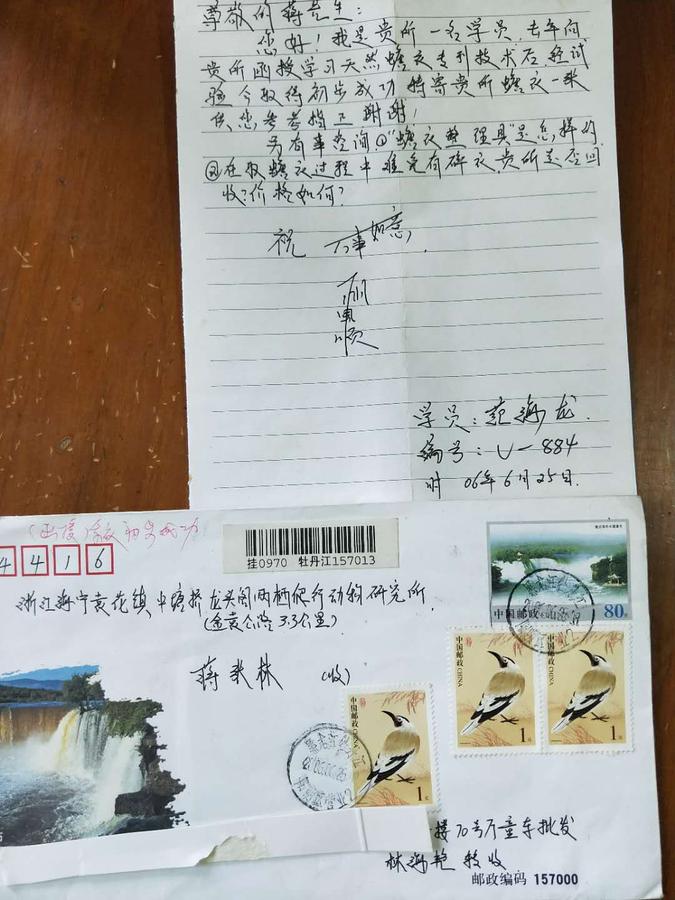 尊敬的蒋先生:
您好!我是贵所一名学员,去年向
贵所函授学习天然蟾衣专利技术后经试
验今取得初步成功特寄贵所蟾衣一张
供您参考指正谢谢!
另有事咨询①"蟾衣整理具"是怎样的
②在取蟾衣过程中难免有碎衣,贵所是否回
收?价格如何?
祝 万事如意,
顺
学员:范海龙.
编号:U-884
时 06年6月25日.
4416
挂0970 牡丹江157013
中国邮政 80分
浙江海宁袁花镇,中塘桥龙头阁两栖爬行动物研究所,
(金袁公路3.3公里)
中国邮政 CHINA 1元
中国邮政 CHINA 1元
蒋 林 (收)
中国邮政 CHINA 1元
楼70号厅童车批发
林海艳 转收
邮政编码 157000